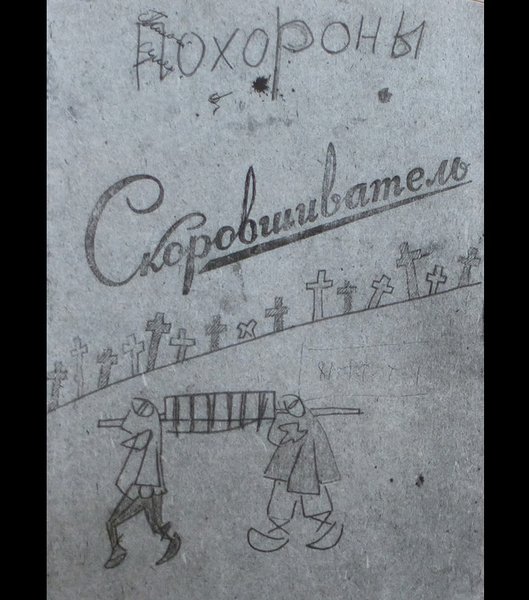 Похороны
Скоровшиватель